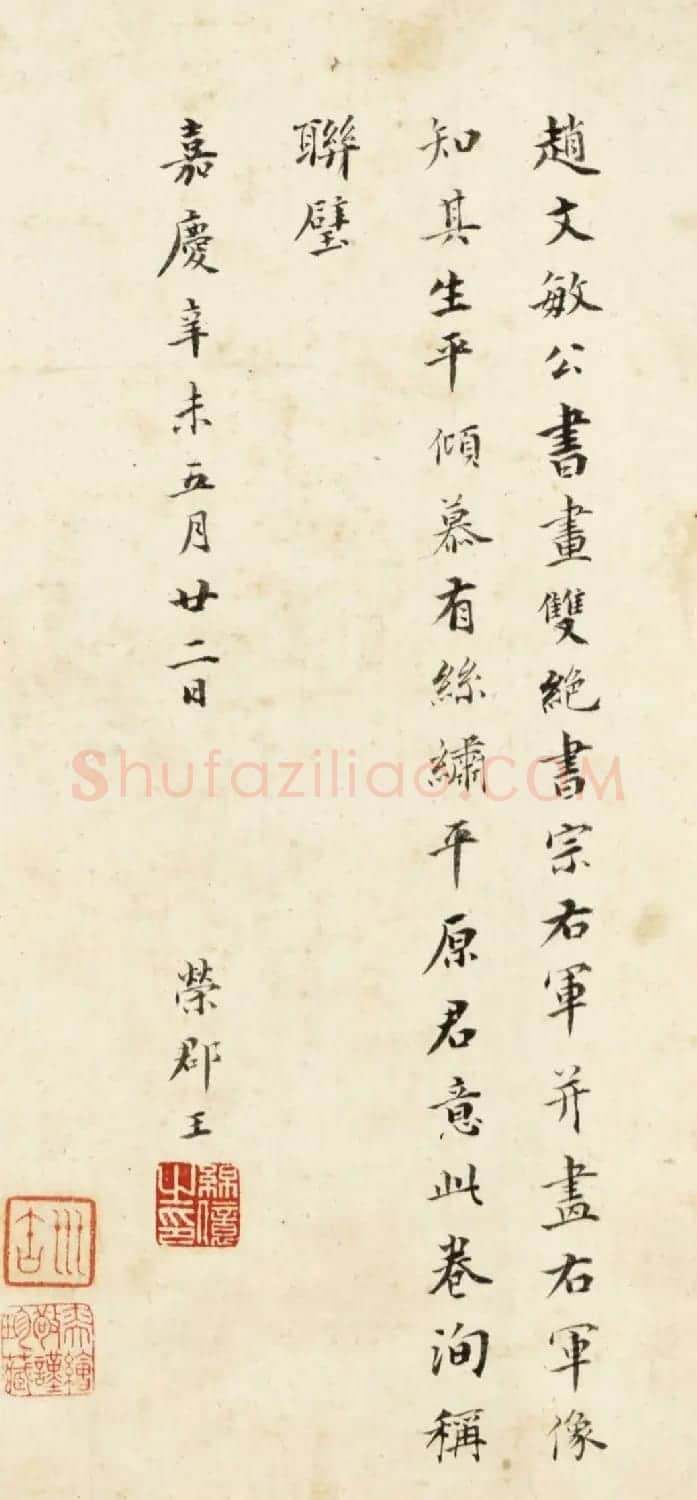 趙文敏公書畫雙絶書宗右軍并盡右軍像
知其生平傾慕有絲繡平原君意此卷洵稱
聯璧
嘉慶辛未五月廿二日
榮郡王
緜億之印
奕繪敬謹珍藏
Shufaziliao.COM